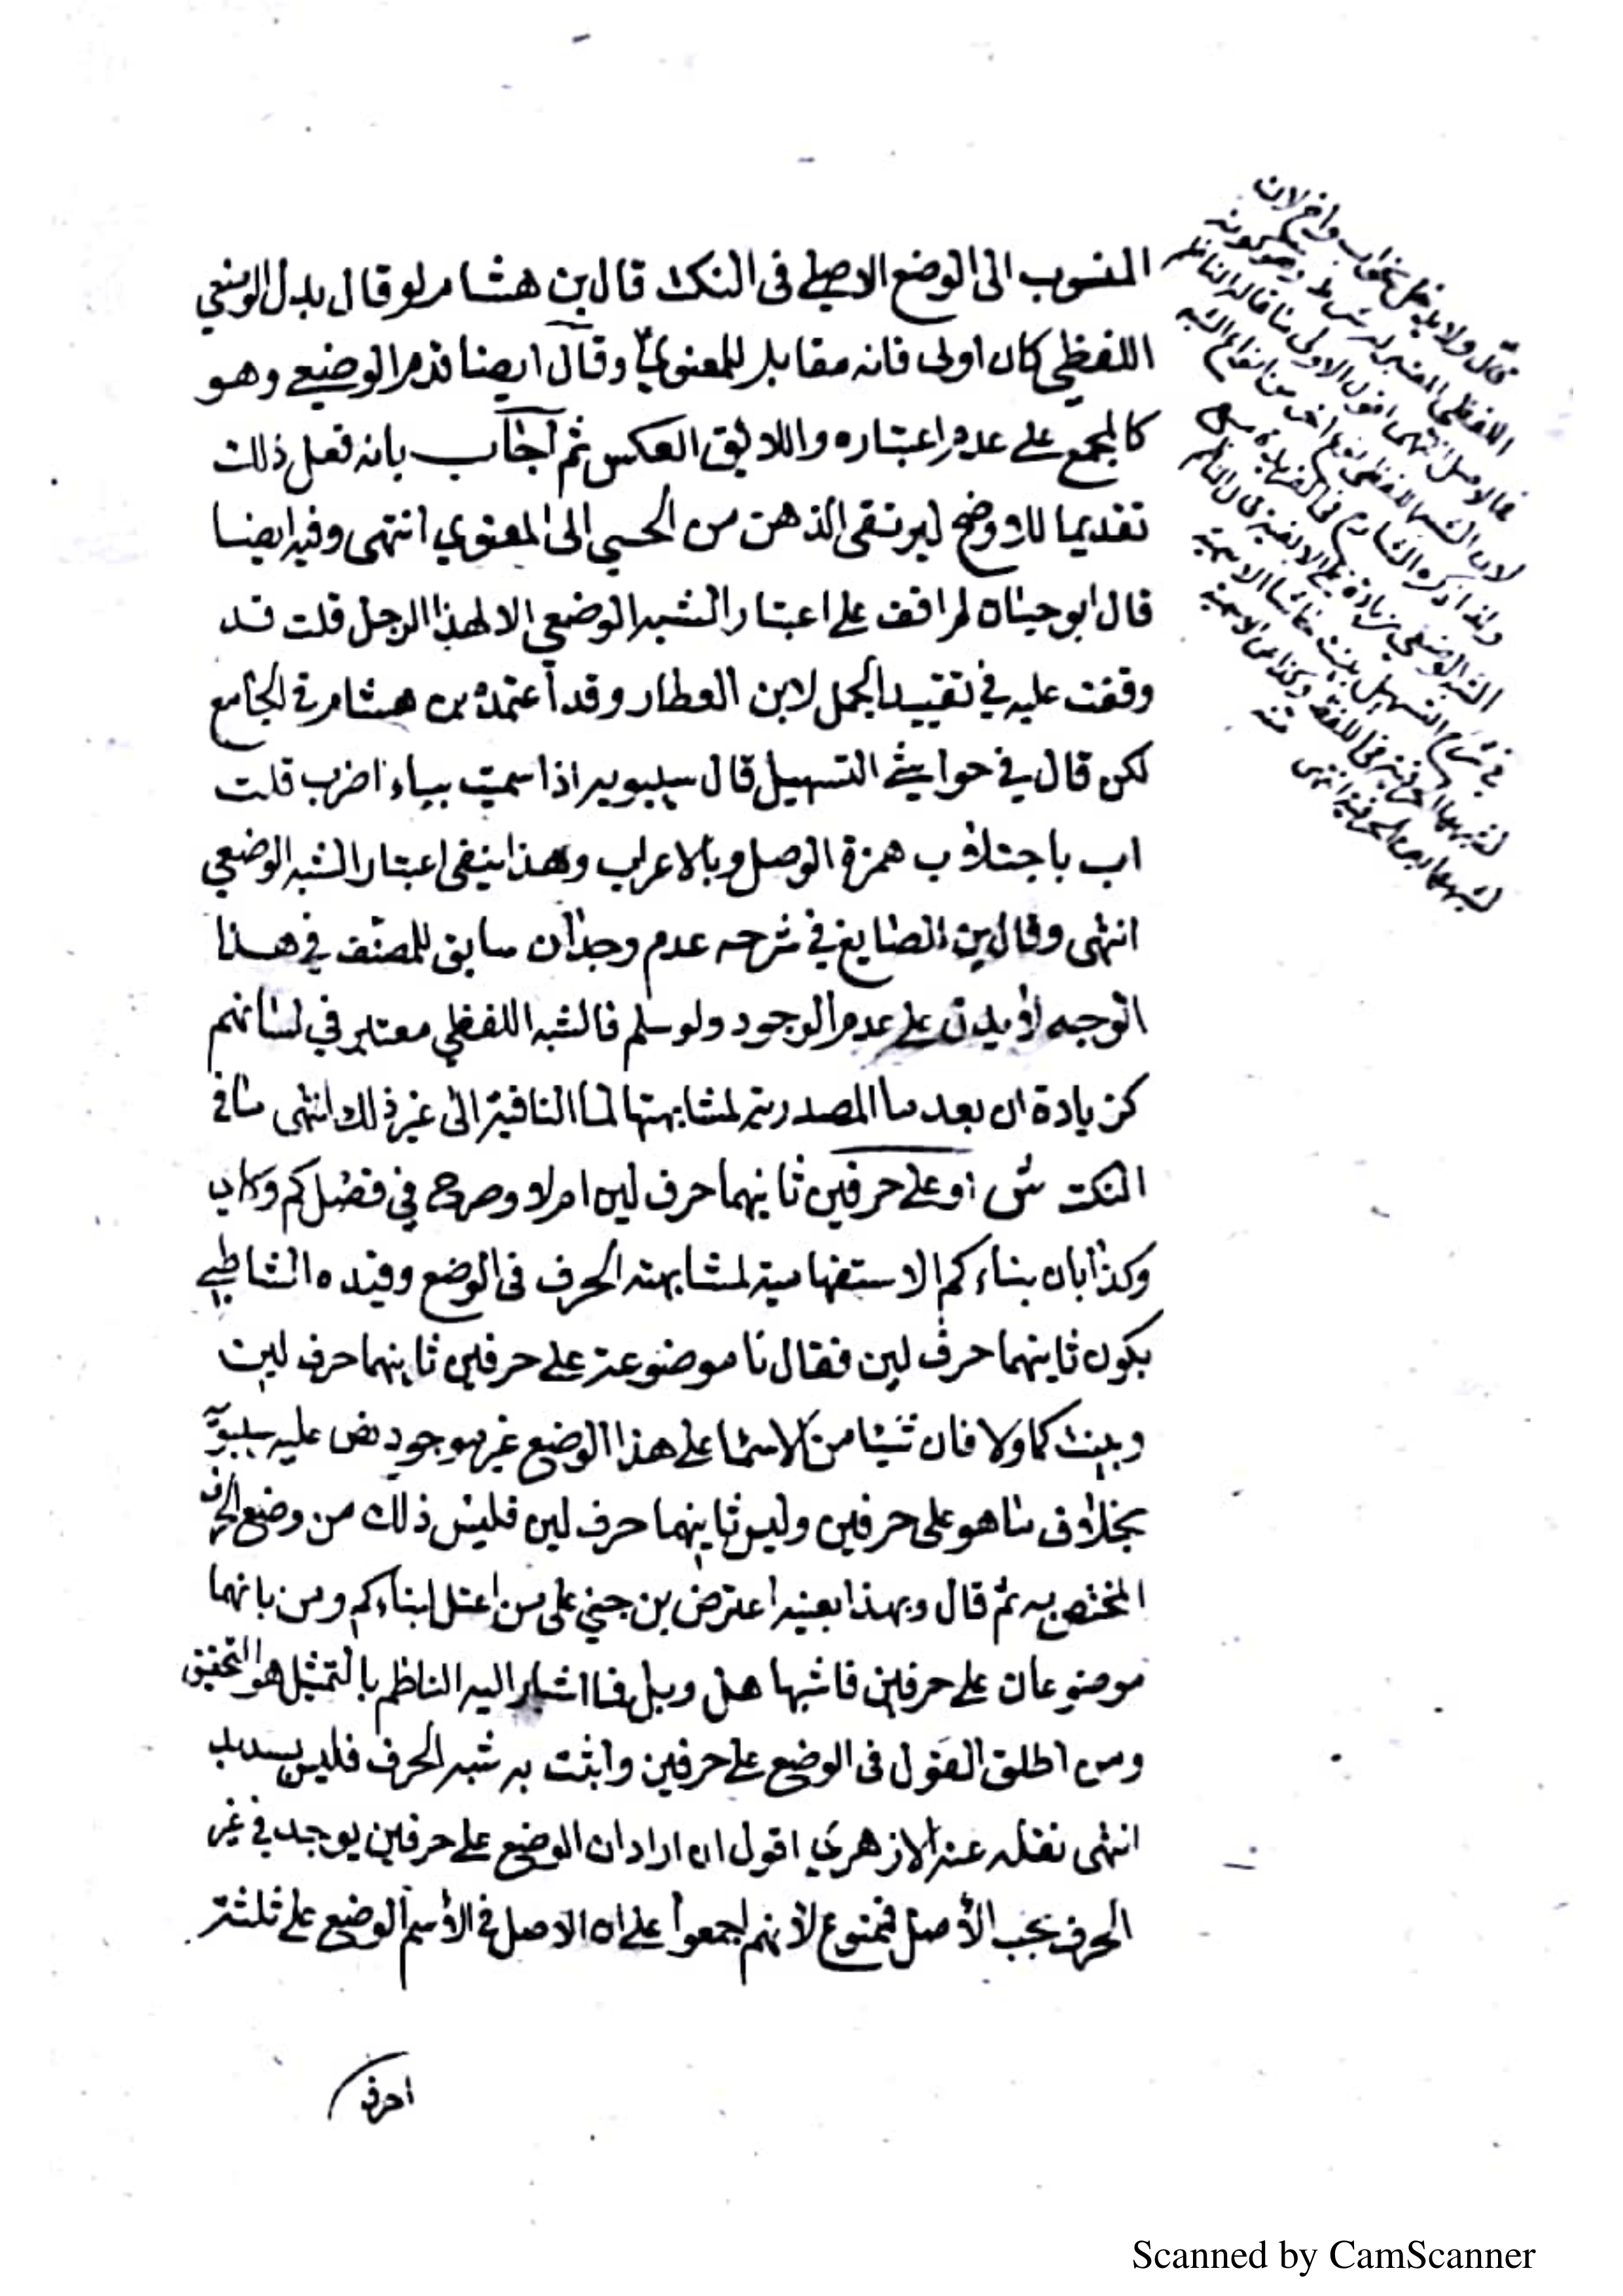 المنسوب الى الوضع الاصلي فى النكت قال بن هشام لو قال بدل الوضعي
اللفظي كان اولى فانه مقابل للمعنوي وقال ايضا قدم الوضعي وهو
كالمجمع على عدم اعتباره واللايق العكس ثم اجاب بانه فعل ذلك
تقديما للاوضح ليرتقى الذهن من الحسي الى المعنوي انتهى وفيه ايضا
قال ابو حيان لم اقف على اعتبار الشبه الوضعي الا لهذا الرجل قلت قد
وقفت عليه في تقييد الجمل لابن العطار وقد اعتمده بن هشام في الجامع
لكن قال في حواشي التسهيل قال سيبويه اذا سميت بباء اضرب قلت
اب باجتلاب همزة الوصل وبالاعراب وهذا ينفى اعتبار الشبه الوضعي
انتهى وقال بن الصايغ في شرحه عدم وجدان سابق للمصنف في هذا
الوجه لا يدل على عدم الوجود ولو سلم فالشبه اللفظي معتبر في لسانهم
كزيادة ان بعد ما المصدرية لمشابهتها لما النافية الى غير ذلك انتهى ما في
النكت ش او على حرفين ثانيهما حرف لين ام لا وصرح في فصل كم وكاين
وكذا بان بناء كم الاستفهامية لمشابهته الحرف فى الوضع وقيده الشاطبي
بكون ثانيهما حرف لين فقال نا موضوعة على حرفين ثانيهما حرف لين
وبنيت كما ولا فان شيئا من الاسما على هذا الوضع غير موجود نص عليه سيبويه
بخلاف ما هو على حرفين وليس ثانيهما حرف لين فليس ذلك من وضع الحرف
المختص به ثم قال وبهذا بعينه اعترض بن جني على من اعتل لبناء كم ومن بانهما
موضوعان على حرفين فاشبها هل وبل فما اشار اليه الناظم بالتمثيل هو التحقيق
ومن اطلق القول فى الوضع على حرفين واثبت به شبه الحرف فليس بسديد
انتهى نقله عنه الازهري اقول ان اراد ان الوضع على حرفين يوجد في غير
الحرف بحسب الأصل فممنوع لأنهم اجمعوا على ان الاصل في الاسم الوضع على ثلثة
احرف
قال ولا
اللفظي
فالاصل انتهى اقول الاولى ما قاله الناظم
لان الشبه اللفظي نوع اخر من انواع الشبه
الشبه الوضعي زيادة على الالفية
في شرح التسهيل بنيت حاشا الاسمية
لشبهها الحرفية في اللفظ وكذا عن الاسمية
لشبهها بعن الحرفية انتهى منه
Scanned by CamScanner